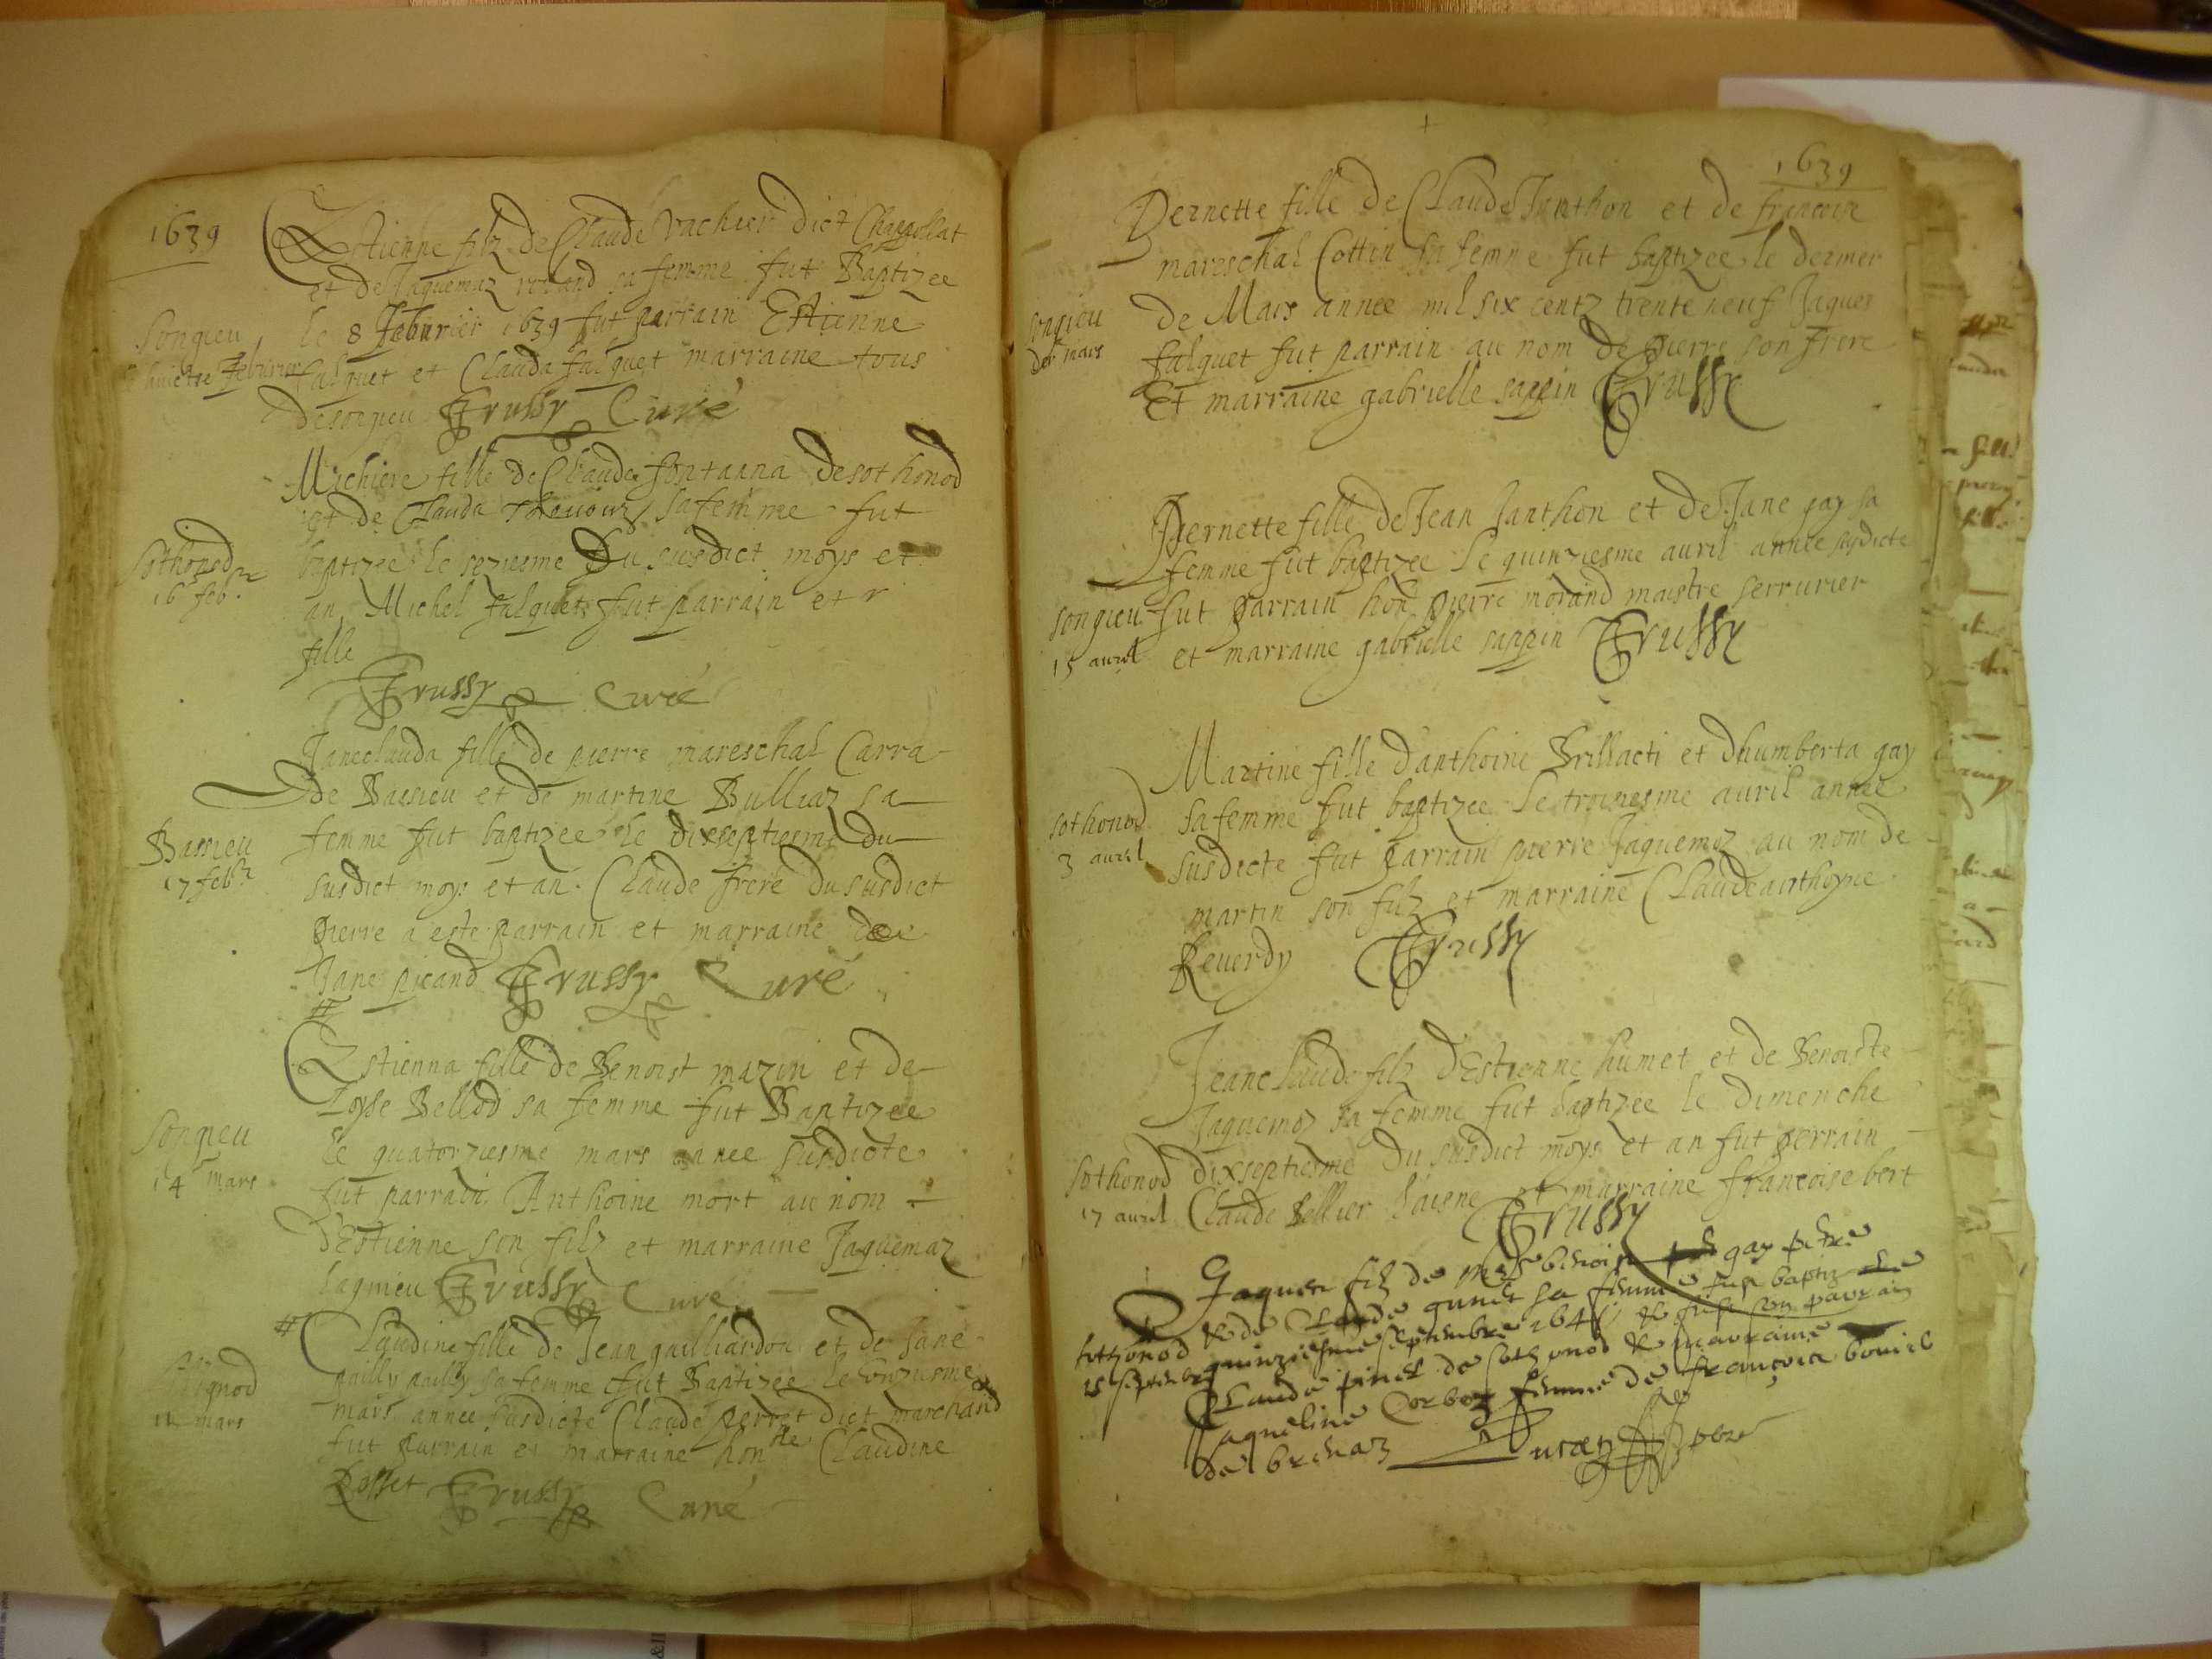 1639
Estienne filz de Claude Vachier dict
et de Jaquemaz sa femme fut Baptizee
Songieu
le 8 Feburier 1639 fut parrain Estienne
Feburier
falquet et Clauda falquet marraine tous
de songieu Trussy Curé
Michiere fille de Claude fontanna de sothonod
et de Clauda sa femme fut
Sothonod
16 feb.
baptizee le seziesme du susdict moys et
an Michel falquet fut parrain et
fille
Trussy Curé
Janeclauda fille de pierre mareschal Carra
de Bassieu et de martine Bulliaz sa
Bassieu
17 feb.
femme fut baptizee le dixseptiesme du
susdict moys et an. Claude frere du susdict
pierre a este parrain et marraine
Jane picand Trussy Curé
#
Estienna fille de Benoist mazin et de
Loyse Bellod sa femme fut Baptizee
Songieu
14 mars
le quatorziesme mars annee susdicte
fut parrain Anthoine mort au nom
d'Estienne son filz et marraine Jaquemaz
lagnieu Trussy Curé
# Claudine fille de Jean gailliardon et de Jane
pailly pailly sa femme fut Baptizee le onziesme
mars
mars annee susdicte Claude perret dict marchand
fut parrain et marraine honble Claudine
Rosset Trussy Curé
1639
Pernette fille de Claude Janthon et de francoise
mareschal Cottin sa femme fut baptizee le dernier
songieu
der mars
de Mars annee mil six centz trente neuf Jaques
falquet fut parrain au nom de pierre son frere
Et marraine gabrielle sappin Trussy
Pernette fille de Jean Janthon et de Jane gay sa
femme fut baptizee le quinziesme auril annee sudicte
songieu
15 auril
fut parrain hon pierre morand maistre serrurier
et marraine gabrielle sappin Trussy
Martine fille d'anthoine Brillacti et d'humberta gay
sothonod
3 auril
sa femme fut baptizee le troiziesme auril annee
susdicte fut parrain pierre Jaquemoz au nom de
martin son filz et marraine Claudeanthoyne
Reuerdy Trussy
Jeanclaude filz d'Estienne humet et de Benoiste
Jaquemoz sa femme fut baptizee le dimenche
sothonod
17 auril
dixseptiesme du susdict moys et an fut perrain
Claude Bellier laisne et marraine francoise bert
Trussy
Jaques filz de benoist gay
& de Claude sa femme fust baptiz
sothonod
15 septembre
quinziesme septembre & fust son parrain
Claude pinet de sothonod & marraine
Jaqueline Corboz femme de francois
de brenaz